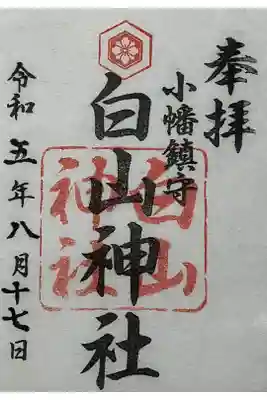 奉拝
小幡鎮守
白山神社
白山神社
令和五年八月十七日